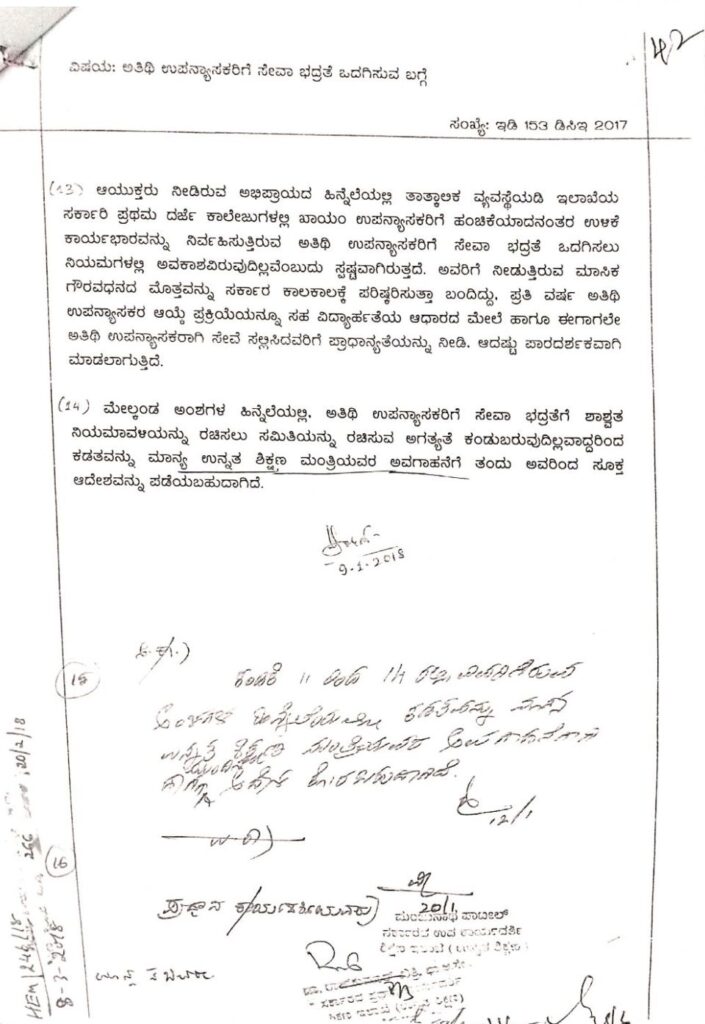 42
ವಿಷಯ: ಅತಿಥಿ ಉಪನ್ಯಾಸಕರಿಗೆ ಸೇವಾ ಭದ್ರತೆ ಒದಗಿಸುವ ಬಗ್ಗೆ
ಸಂಖ್ಯೆ: ಇಡಿ 153 ಡಿಸಿಇ 2017
(13) ಆಯುಕ್ತರು ನೀಡಿರುವ ಅಭಿಪ್ರಾಯದ ಹಿನ್ನೆಲೆಯಲ್ಲಿ ತಾತ್ಕಾಲಿಕ ವ್ಯವಸ್ಥೆಯಡಿ ಇಲಾಖೆಯ
ಸರ್ಕಾರಿ ಪ್ರಥಮ ದರ್ಜೆ ಕಾಲೇಜುಗಳಲ್ಲಿ ಖಾಯಂ ಉಪನ್ಯಾಸಕರಿಗೆ ಹಂಚಿಕೆಯಾದನಂತರ ಉಳಿಕೆ
ಕಾರ್ಯಭಾರವನ್ನು ನಿರ್ವಹಿಸುತ್ತಿರುವ ಅತಿಥಿ ಉಪನ್ಯಾಸಕರಿಗೆ ಸೇವಾ ಭದ್ರತೆ ಒದಗಿಸಲು
ನಿಯಮಗಳಲ್ಲಿ ಅವಕಾಶವಿರುವುದಿಲ್ಲವೆಂಬುದು ಸ್ಪಷ್ಟವಾಗಿರುತ್ತದೆ. ಅವರಿಗೆ ನೀಡುತ್ತಿರುವ ಮಾಸಿಕ
ಗೌರವಧನದ ಮೊತ್ತವನ್ನು ಸರ್ಕಾರ ಕಾಲಕಾಲಕ್ಕೆ ಪರಿಷ್ಕರಿಸುತ್ತಾ ಬಂದಿದ್ದು, ಪ್ರತಿ ವರ್ಷ ಅತಿಥಿ
ಉಪನ್ಯಾಸಕರ ಆಯ್ಕೆ ಪ್ರಕ್ರಿಯೆಯನ್ನೂ ಸಹ ವಿದ್ಯಾರ್ಹತೆಯ ಆಧಾರದ ಮೇಲೆ ಹಾಗೂ ಈಗಾಗಲೇ
ಅತಿಥಿ ಉಪನ್ಯಾಸಕರಾಗಿ ಸೇವೆ ಸಲ್ಲಿಸಿದವರಿಗೆ ಪ್ರಾಧಾನ್ಯತೆಯನ್ನು ನೀಡಿ, ಆದಷ್ಟು ಪಾರದರ್ಶಕವಾಗಿ
ಮಾಡಲಾಗುತ್ತಿದೆ.
(14) ಮೇಲ್ಕಂಡ ಅಂಶಗಳ ಹಿನ್ನೆಲೆಯಲ್ಲಿ, ಅತಿಥಿ ಉಪನ್ಯಾಸಕರಿಗೆ ಸೇವಾ ಭದ್ರತೆಗೆ ಶಾಶ್ವತ
ನಿಯಮಾವಳಿಯನ್ನು ರಚಿಸಲು ಸಮಿತಿಯನ್ನು ರಚಿಸುವ ಅಗತ್ಯತೆ ಕಂಡುಬರುವುದಿಲ್ಲವಾದ್ದರಿಂದ
ಕಡತವನ್ನು ಮಾನ್ಯ ಉನ್ನತ ಶಿಕ್ಷಣ ಮಂತ್ರಿಯವರ ಅವಗಾಹನೆಗೆ ತಂದು ಅವರಿಂದ ಸೂಕ್ತ
ಆದೇಶವನ್ನು ಪಡೆಯಬಹುದಾಗಿದೆ.
9-1-2018
15
ಕಂಡಿಕೆ 11 ರಿಂದ 14
ಕಡತವನ್ನು ಮಾನ್ಯ
ಉನ್ನತ ಶಿಕ್ಷಣ
ಕೋರಬಹುದಾಗಿದೆ.
12/1
16
20/1
ಪ್ರಧಾನ ಕಾರ್ಯದರ್ಶಿಯವರು
ಮಂಜುನಾಥ ಪಾಟೀಲ್
ಸರ್ಕಾರದ ಉಪ ಕಾರ್ಯದರ್ಶಿ
ಶಿಕ್ಷಣ ಇಲಾಖೆ (ಉನ್ನತ ಶಿಕ್ಷಣ)
HEM/246/18
8-3-2018
266
20/2/18